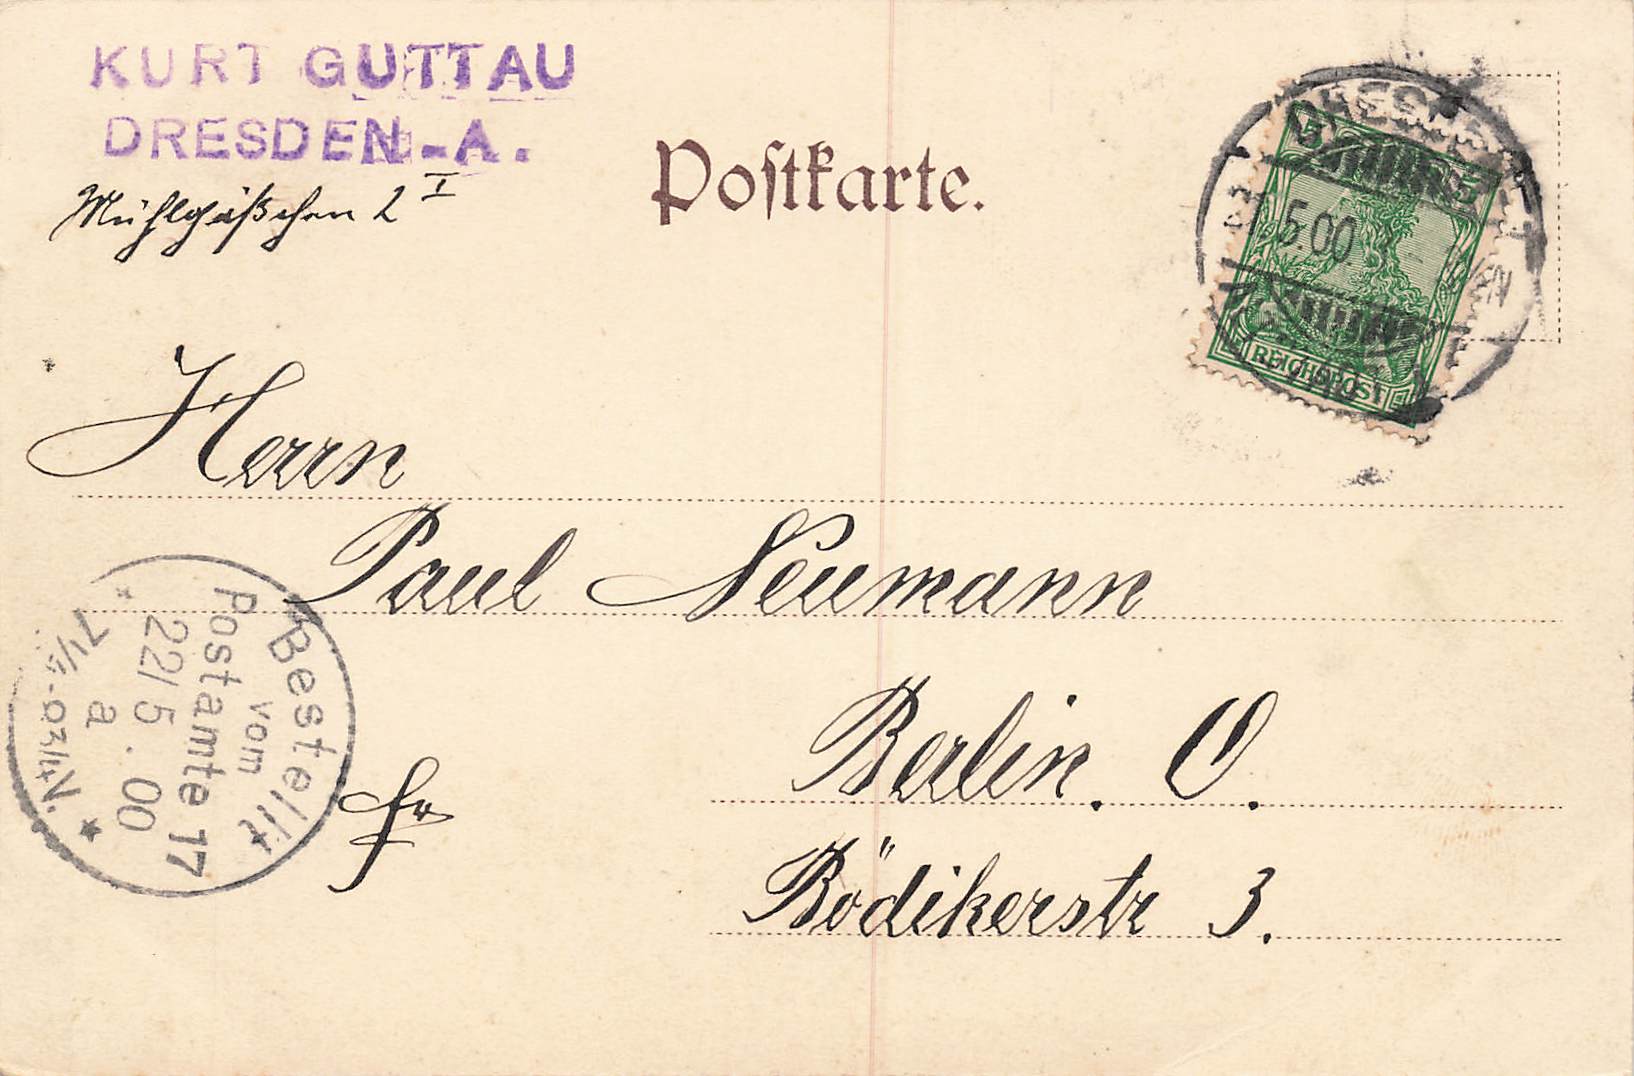 KURT GUTTAU
DRESDEN-A.
Mühlgäßchen 2 I
Postkarte.
5 5
5.00
REICHSPOST
Herrn
Paul Neumann
Berlin. O.
Bödikerstr 3.
fr
Bestellt
vom
Postamte 17
22/5.00
a
7 1/4-8 3/4 N.